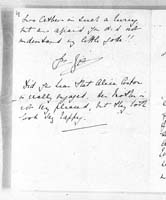 in such a hurry
but am afraid you did not
understand my little joke!!
Did you hear that Alice
is really engaged. Her Mother is
not very pleased, but they both
look very happy.